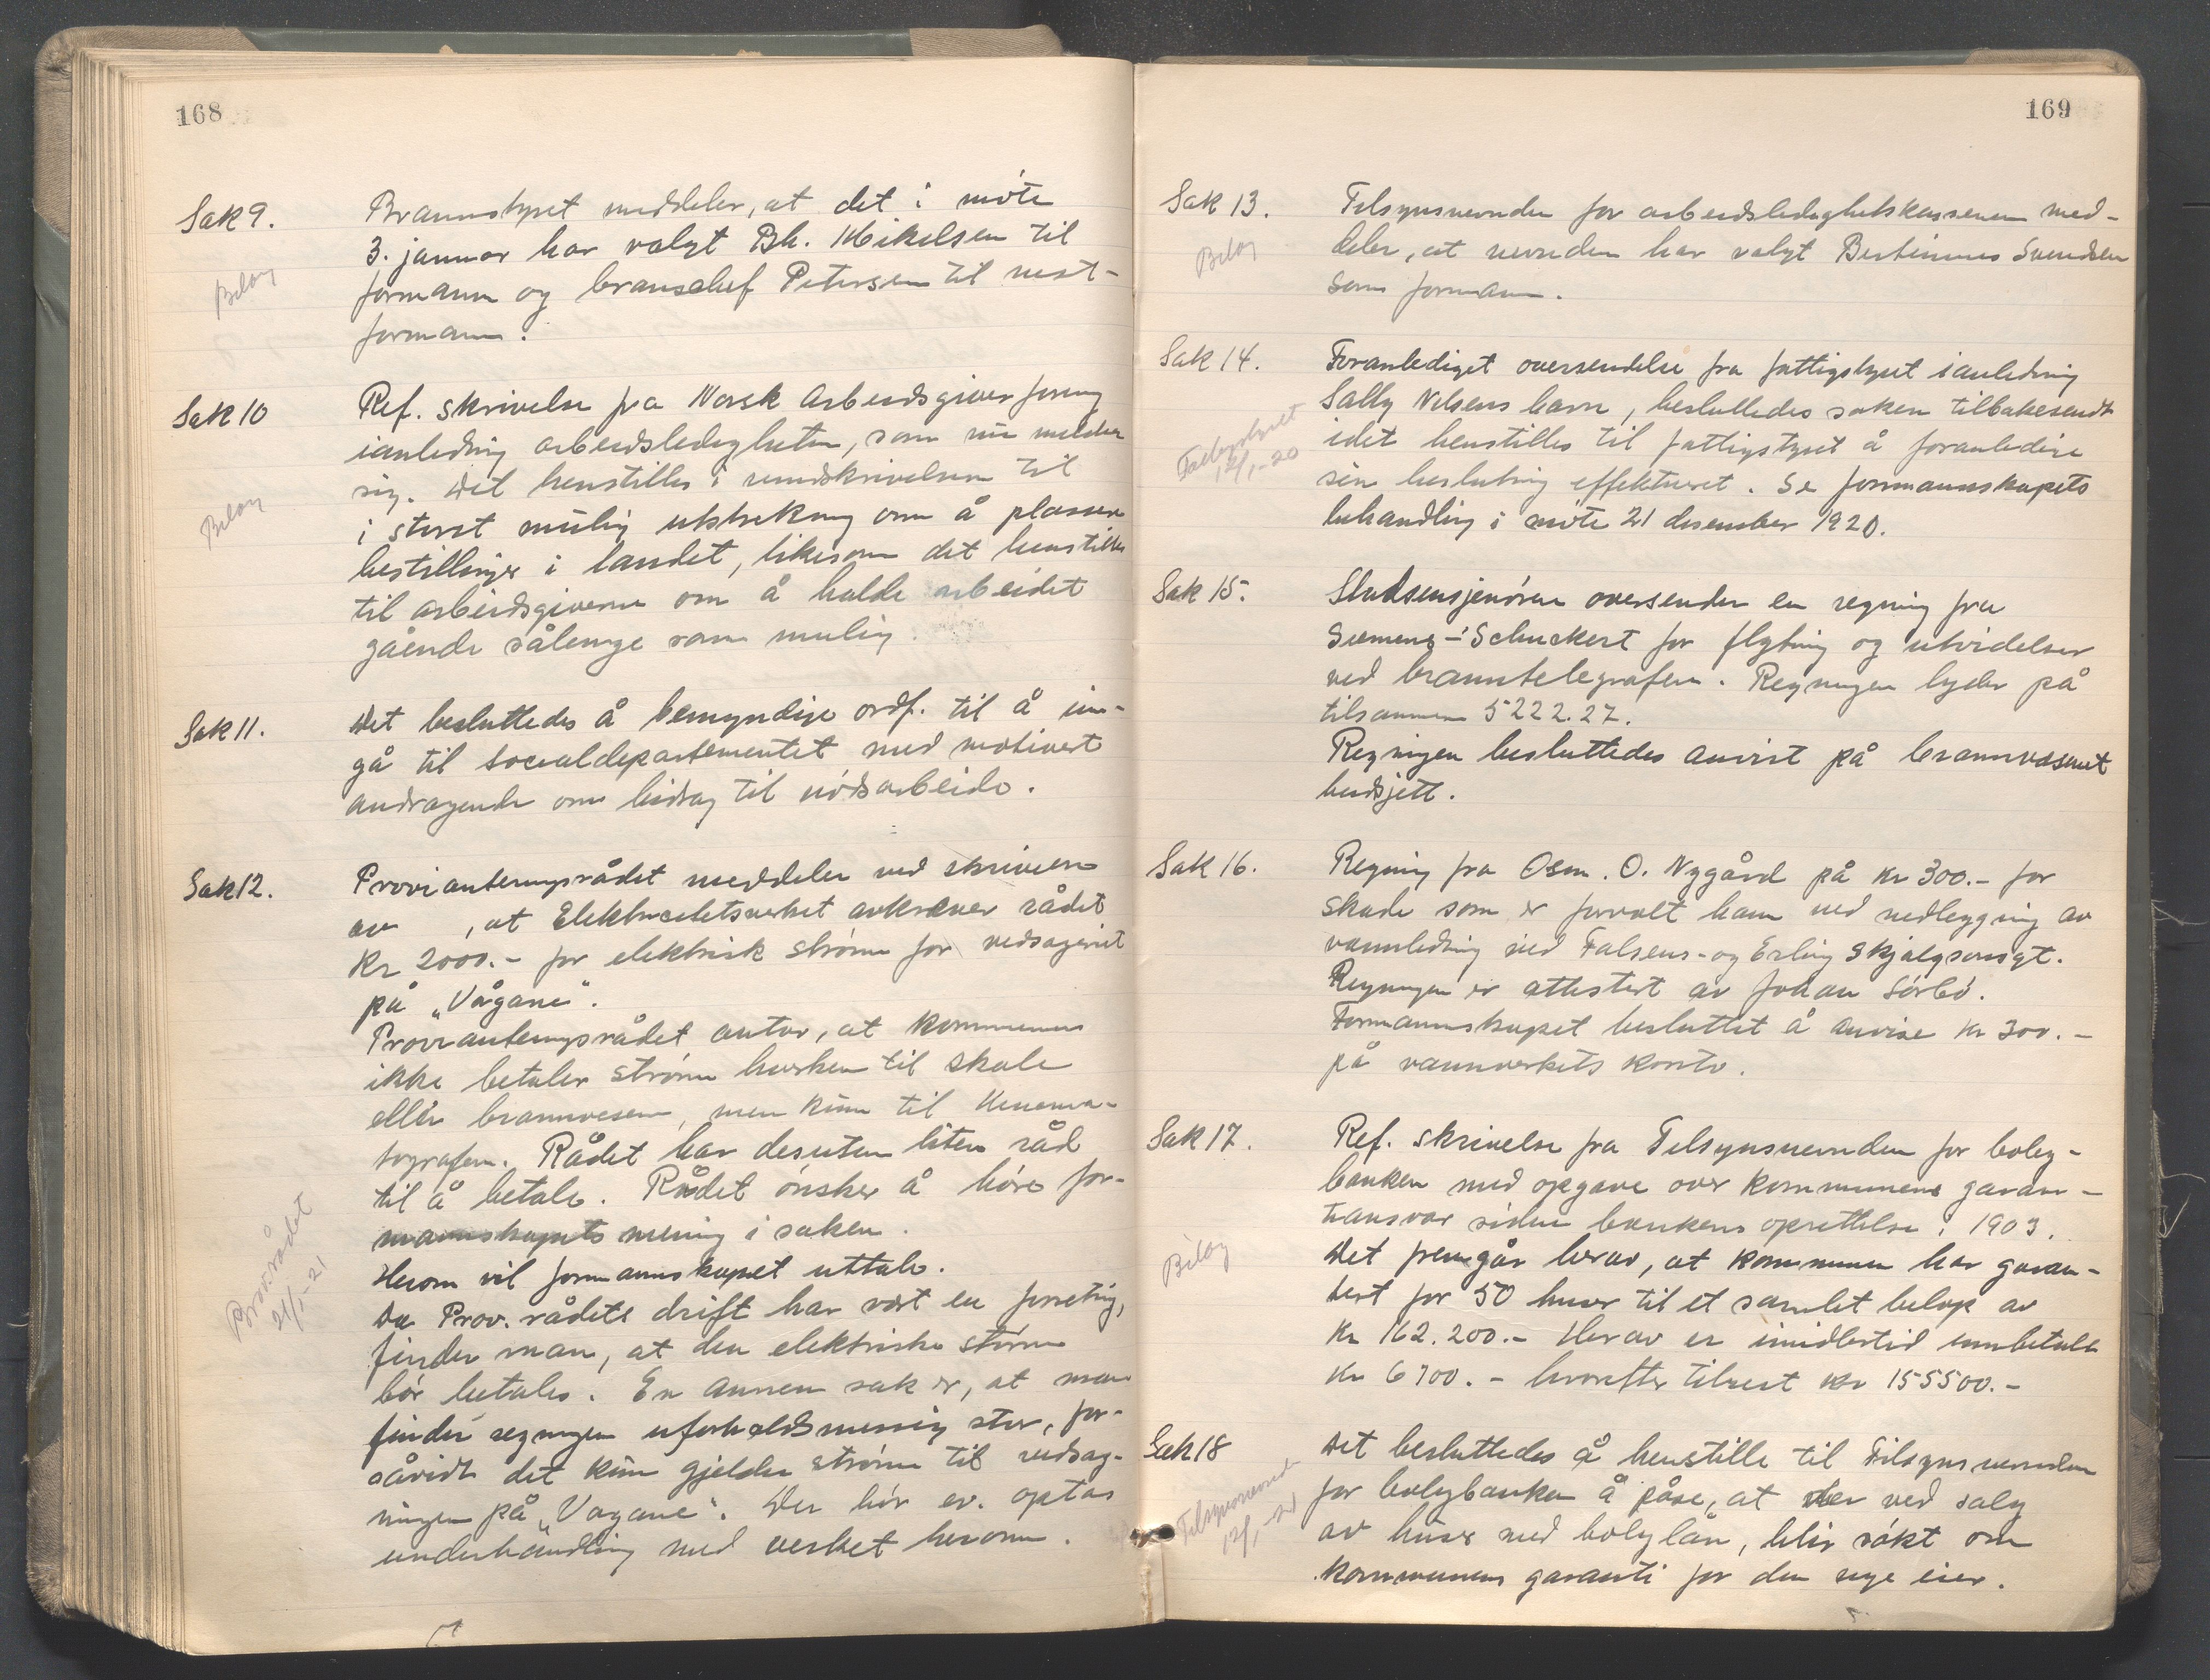 168
Sak 9.
Brannstyret meddeler, at det i møte
3. januar har valgt Bh. Mikelsen til
formann og branschef Petersen til nest-
formann.
Bilag
Sak 10
Ref. skrivelse fra Norsk Arbeidsgiverforening
ianledning arbeidsledigheten, som nu melder
sig. Det henstilles i rundskrivelsen til
i størst mulig utstrekning om å plassere
bestillinger i landet, likesom det henstilles
til arbeidsgiverne om å holde arbeidet
gående sålenge som mulig.
Bilag
Sak 11.
Det besluttedes å bemyndige ordf. til å inn-
gå til socialdepartementet med motivert
andragende om bidrag til nødsarbeide.
Sak 12.
Provianteringsrådet meddeler ved skrivelse
av , at Elektrisitetsverket avkrever rådet
Kr 2000.- for elektrisk strøm for vedsageriet
på „Vågane".
Provianteringsrådet antar, at kommunen
ikke betaler strøm hverken til skole
eller brannvesen, men kun til kinema-
tografen. Rådet har desuten liten råd
til å betale. Rådet ønsker å høre for-
mannskapets mening i saken.
Herom vil formannskapet uttale.
Da Prov. rådets drift har vært en forretning,
finder man, at den elektriske strøm
bør betales. En annen sak er, at man
finder regningen uforholdsmessig stor, for-
såvidt det kun gjelder strøm til vedsag-
ningen på „Vagane". Der bør ev. optas
underhandling med verket herom.
Prov. rådet
21/1-21
169
Sak 13.
Tilsynsnevnden for arbeidsledighetskassenen med-
deler, at nevnden har valgt Bertinius Svendsen
som formann.
Bilag
Sak 14.
Foranlediget oversendelse fra fattigstyret ianledning
Sally Nilsens barn, besluttedes saken tilbakesendt
idet henstilles til fattigstyret å foranledige
sin beslutning effektueret. Se formannskapets
behandling i møte 21 desember 1920.
Fattigstyret
12/1-20
Sak 15.
Stadsensjenøren oversender en regning fra
Siemens-Schuckert for flytning og utvidelser
ved branntelegrafen. Regningen lyder på
tilsammen 5222.27.
Regningen besluttedes anvist på brannvæsnet
budsjett.
Sak 16.
Regning fra Osm. O. Nygård på kr 300.- for
skade som er forvolt ham ved nedlegging av
vannledning ved Falsens- og Erling Skjalgsonsgt.
Regningen er attestert av Johan Sørbø.
Formannskapet besluttet å anvise kr 300.-
på vannverkets konto.
Sak 17.
Ref. skrivelse fra Tilsynsnevnden for bolig-
banken med opgave over kommunens garan-
tiansvar siden bankens oprettelse i 1903.
Det fremgår herav, at kommunen har garan-
tert for 50 huser til et samlet beløp av
Kr 162.200.- Herav er imidlertid innbetalt
Kr 6700.- hvorefter tilrest Kr 155500.-
Bilag
Sak 18
Det besluttedes å henstille til Tilsynsnevnden
for boligbanken å påse, at der ved salg
av huser med boliglån, blir søkt om
kommunens garanti for den nye eier.
Tilsynsnevnden
12/1-21